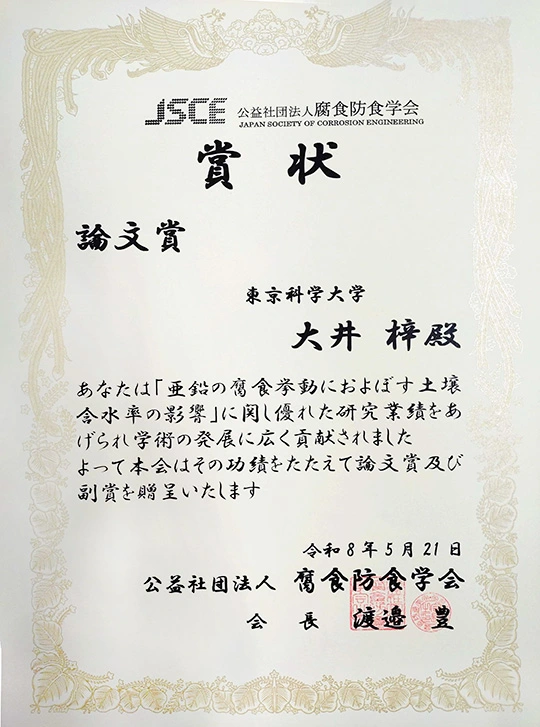 JSCE 公益社団法人腐食防食学会
JAPAN SOCIETY OF CORROSION ENGINEERING
賞状
論文賞
東京科学大学
大井 梓殿
あなたは「亜鉛の腐食挙動におよぼす土壌
含水率の影響」に関し優れた研究業績をあ
げられ学術の発展に広く貢献されました
よって本会はその功績をたたえて論文賞及び
副賞を贈呈いたします
令和8年5月21日
公益社団法人 腐食防食学会
会長 渡邉 豊